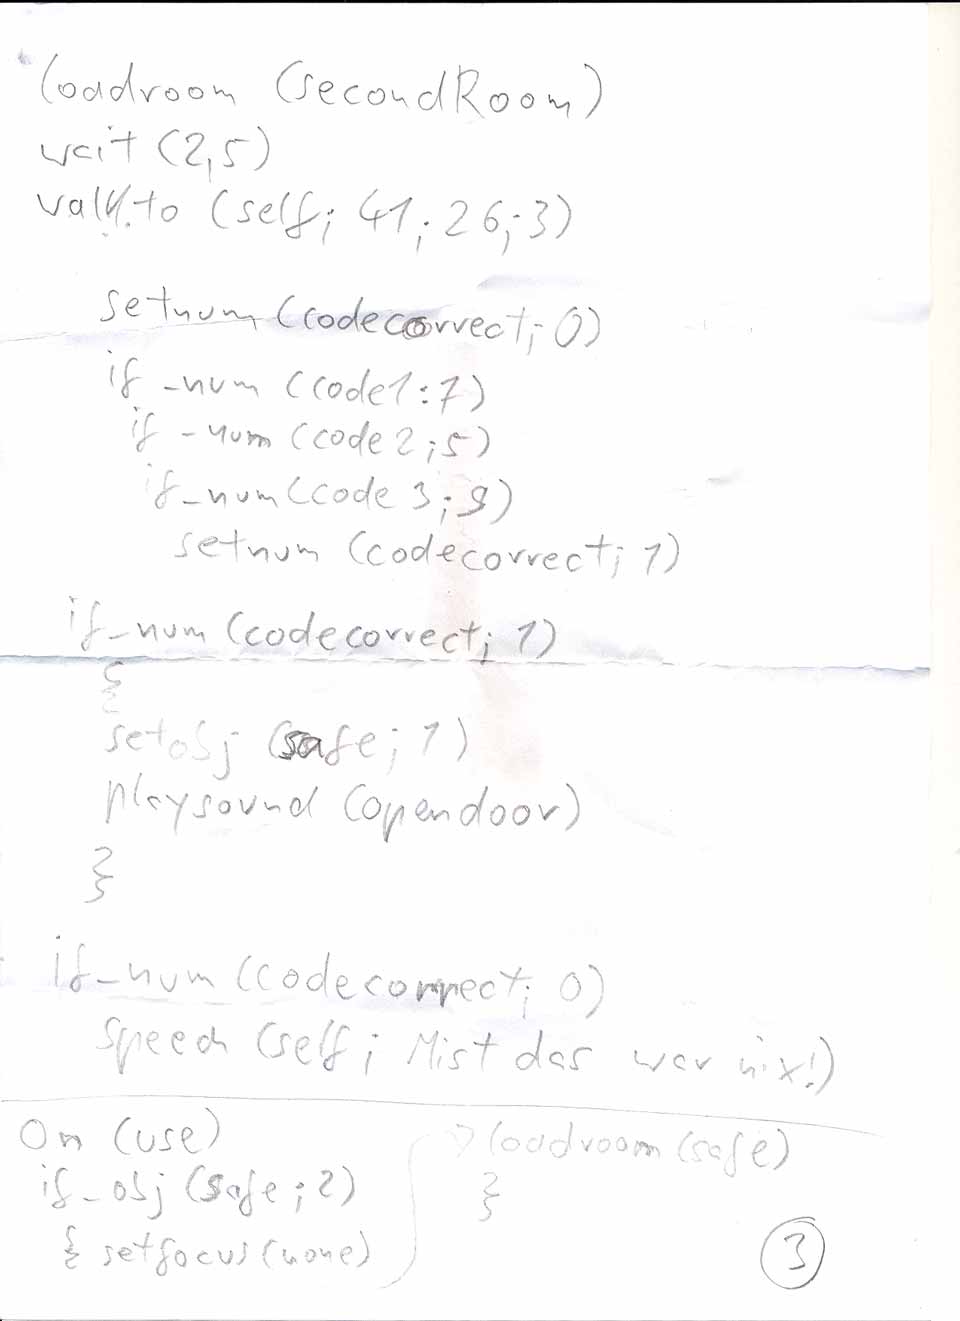 loadroom (secondRoom)
wait (2,5)
walkto (self; 41; 26; 3)
setnum (codecorrect; 0)
if_num (code1:7)
if_num (code2;5)
if_num (code3;9)
setnum (codecorrect; 1)
if_num (codecorrect; 1)
{
setobj (safe; 1)
playsound (opendoor)
}
if_num (codecorrect; 0)
speech (self; Mist das war nix!)
On (use)
if_obj (safe; 2)
{ setfocus (none)
loadroom (safe)
}
3